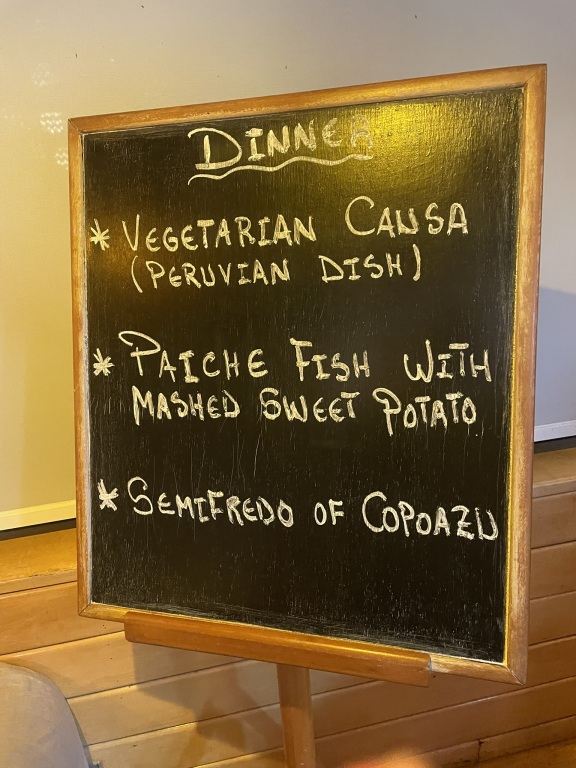 DINNER
* VEGETARIAN CAUSA
(PERUVIAN DISH)
* PAICHE FISH WITH
MASHED SWEET POTATO
* SEMIFREDO OF COPOAZU